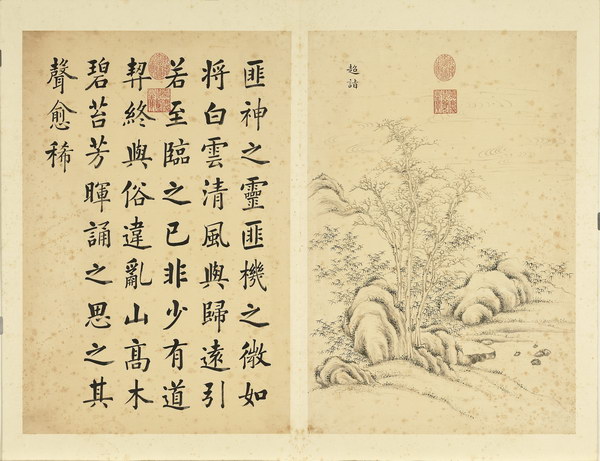 超詣
匪神之靈匪機之微如
將白雲清風與歸遠引
若至臨之已非少有道
契終與俗違亂山高木
碧苔芳暉誦之思之其
聲愈稀